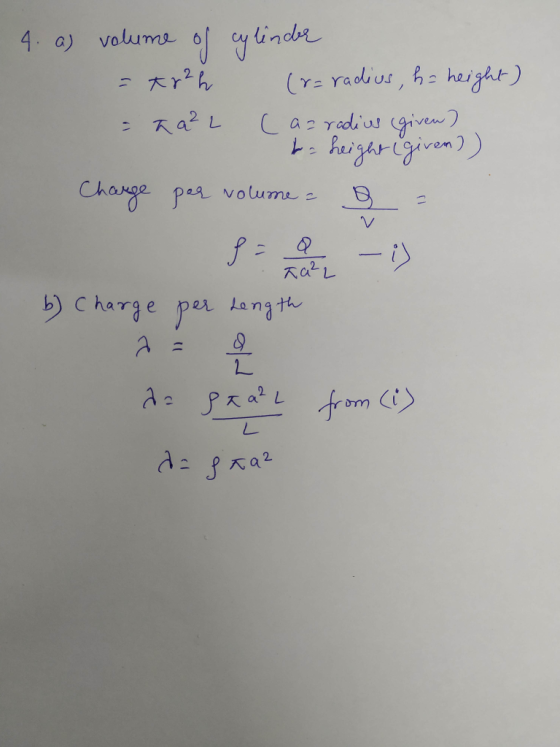 4. a) volume of cylinder
= πr²h (r= radius, h= height)
= πa² L ( a = radius (given)
L = height (given))
Charge per volume = Q/V =
ρ = Q/πa²L — i)
b) Charge per Length
λ = Q/L
λ = ρπa² L/L from (i)
λ = ρπa²